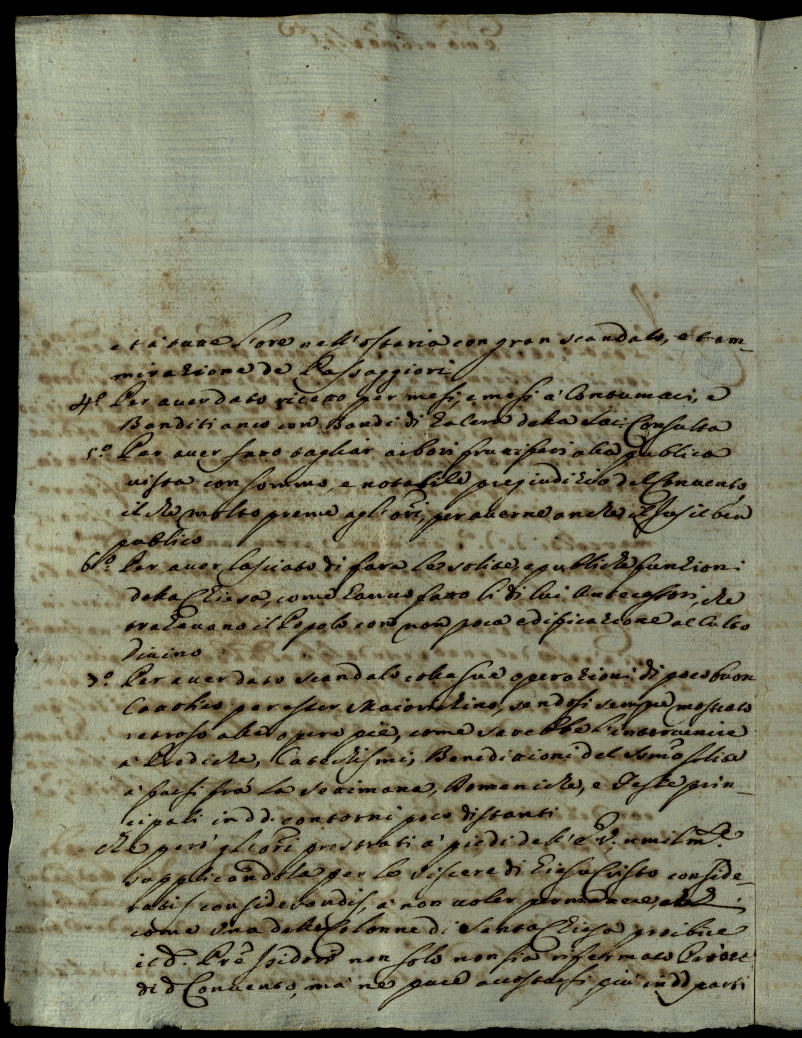 et à tutte l'ore nell'Ostaria con gran scandalo, et am-
mirazione de Passaggieri
4.º Per aver dato ricetto per mesi, e mesi a' Contumaci, e
Banditi anco con Bandi di Galera della Sac: Consulta
5.º Per aver fatto tagliar arbori fruttiferi alla publica
vista con sommo, e notabile pregiudizio del Convento,
il che molto preme agl'Ori, per averne anche il jus il ben
publico
6.º Per aver lasciato di fare le solite, e publiche funzioni
della Chiesa, come hanno fatto li di lui Antecessori, che
tradevano il Popolo con non poca edificazione al Culto
Divino
7.º Per aver dato scandalo colle sue operazioni di poco buon
Cattolico per esser sendosi sempre mostrato
retroso alle opere pie, come sarebbe l'intervenire
a' Prediche, Catechismi, Benedizioni del Ssmo solite
a' farsi frà la Settimana, Domeniche, e Feste prin-
cipali in dd. contorni poco distanti
Che però gl'Ori prostrati a' piedi dell'E. V. umilmte
supplicandola per le viscere di Giesù Cristo conside-
ratis considerandis, a' non voler permettere,
come una delle Colonne di Santa Chiesa proibire
il d. Prê Isidoro non solo non sia rifermato Priore
di d. Convento, mà ne pure accostarsi più in dd. parti